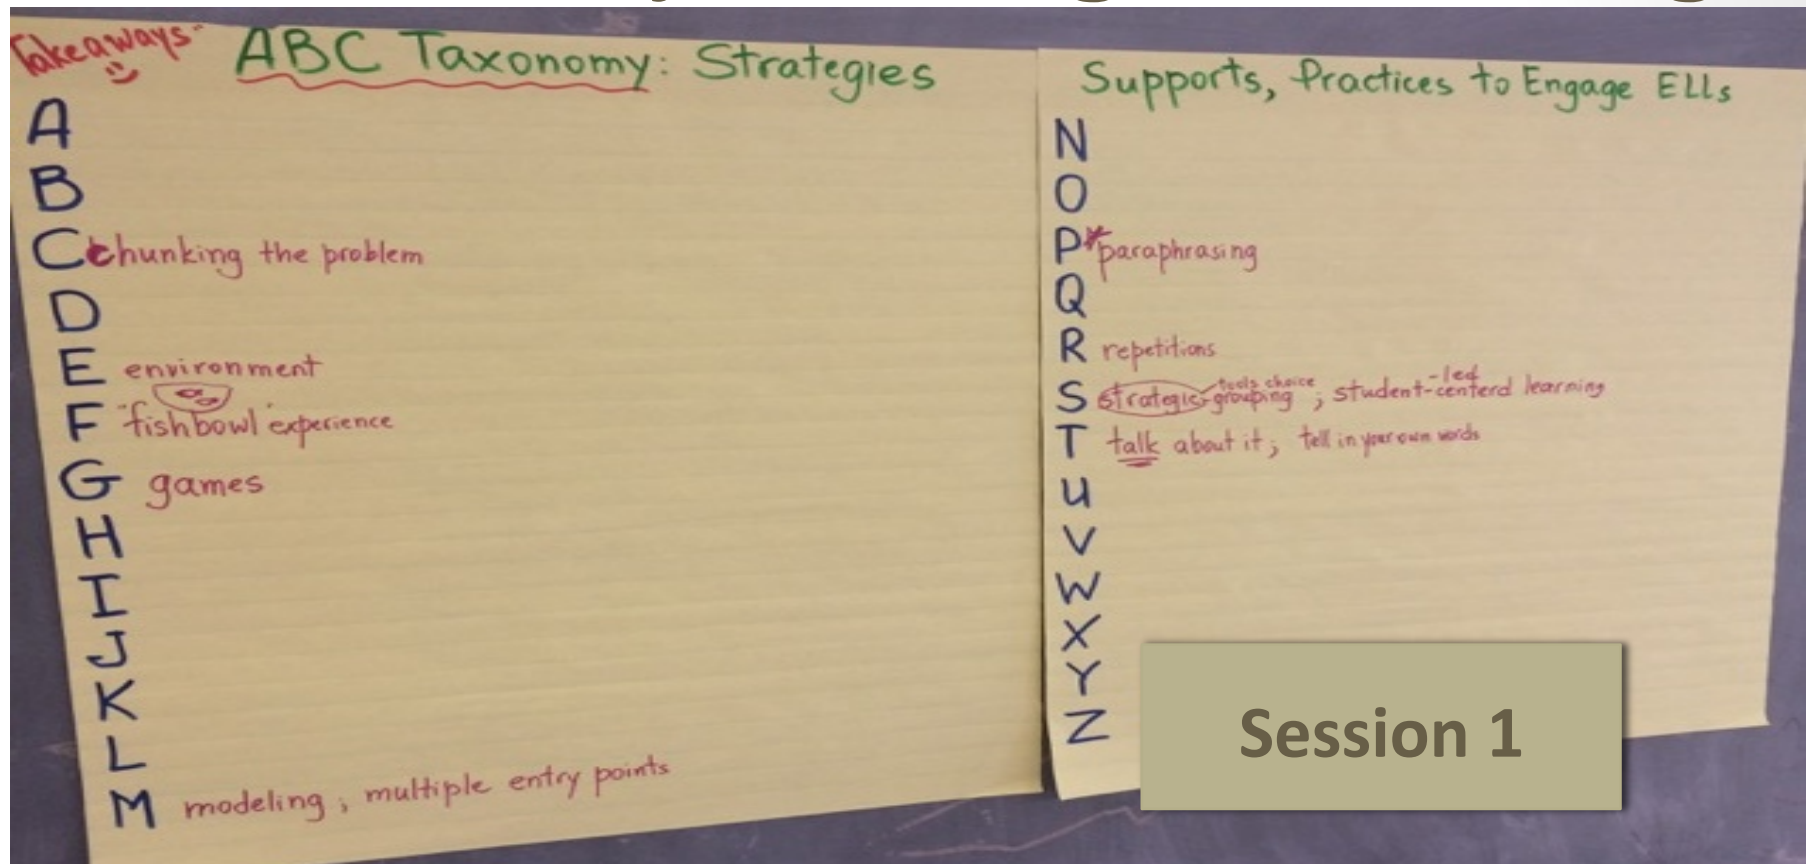 Takeaways
ABC Taxonomy: Strategies
A
B
C chunking the problem
D
E environment
F "fishbowl" experience
G games
H
I
J
K
L
M modeling; multiple entry points
Supports, Practices to Engage ELLs
N
O
P *paraphrasing
Q
R repetitions
tools choice -led
S strategic-grouping; student-centerd learning
T talk about it; tell in your own words
U
V
W
X
Y
Z
Session 1